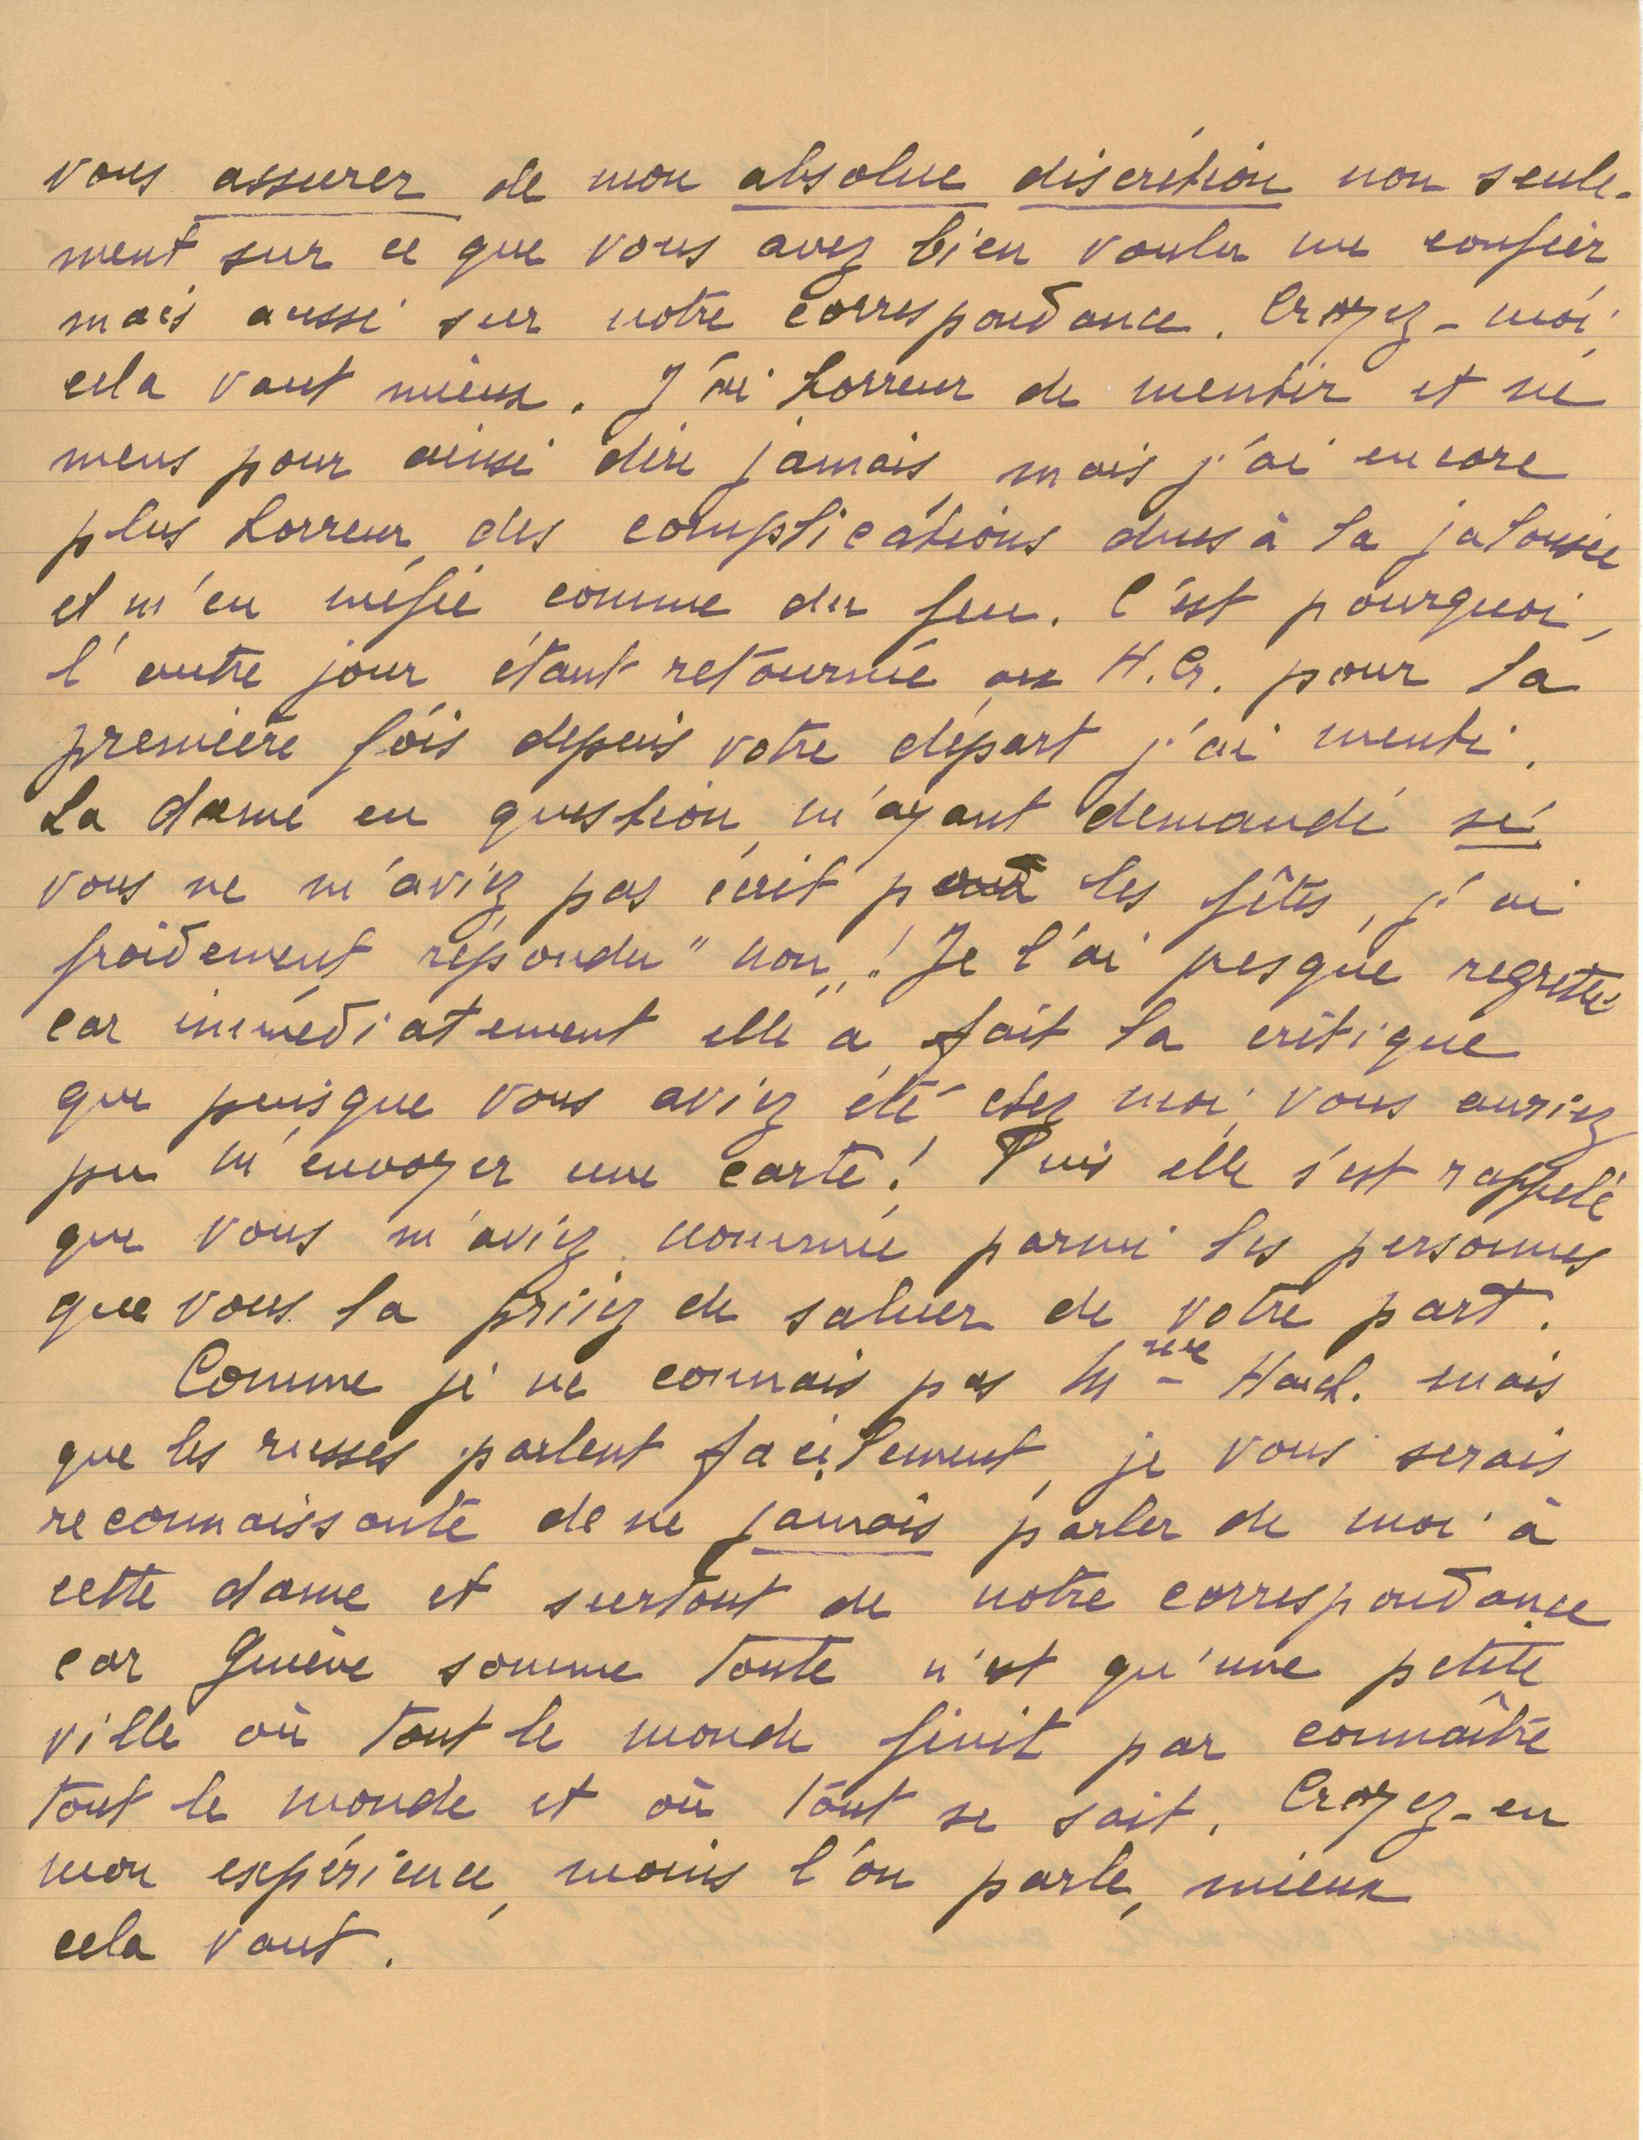 vous assurer de mon absolue discrétion non seule-
ment sur ce que vous avez bien voulu me confier
mais aussi sur notre correspondance. Croyez-moi,
cela vaut mieux. J'ai horreur de mentir et ne
mens pour ainsi dire jamais, mais j'ai encore
plus horreur des complications dues à la jalousie
et m'en méfie comme du feu. C'est pourquoi,
l'autre jour, étant retournée au H.Cr. pour la
première fois depuis votre départ j'ai menti.
La dame en question m'ayant demandé si
vous ne m'aviez pas écrit pour les fêtes, j'ai
froidement répondu "non"! Je l'ai presque regretté
car immédiatement elle a fait la critique
que puisque vous aviez été chez moi, vous auriez
pu m'envoyer une carte! Puis elle s'est rappelé
que vous m'aviez nommée parmi les personnes
que vous la priiez de saluer de votre part.
Comme je ne connais pas Mme Hach. mais
que les russes parlent facilement, je vous serais
reconnaissante de ne jamais parler de moi à
cette dame et surtout de notre correspondance
car Genève somme toute n'est qu'une petite
ville où tout le monde finit par connaître
tout le monde et où tout se sait. Croyez-en
mon expérience, moins l'on parle, mieux
cela vaut.